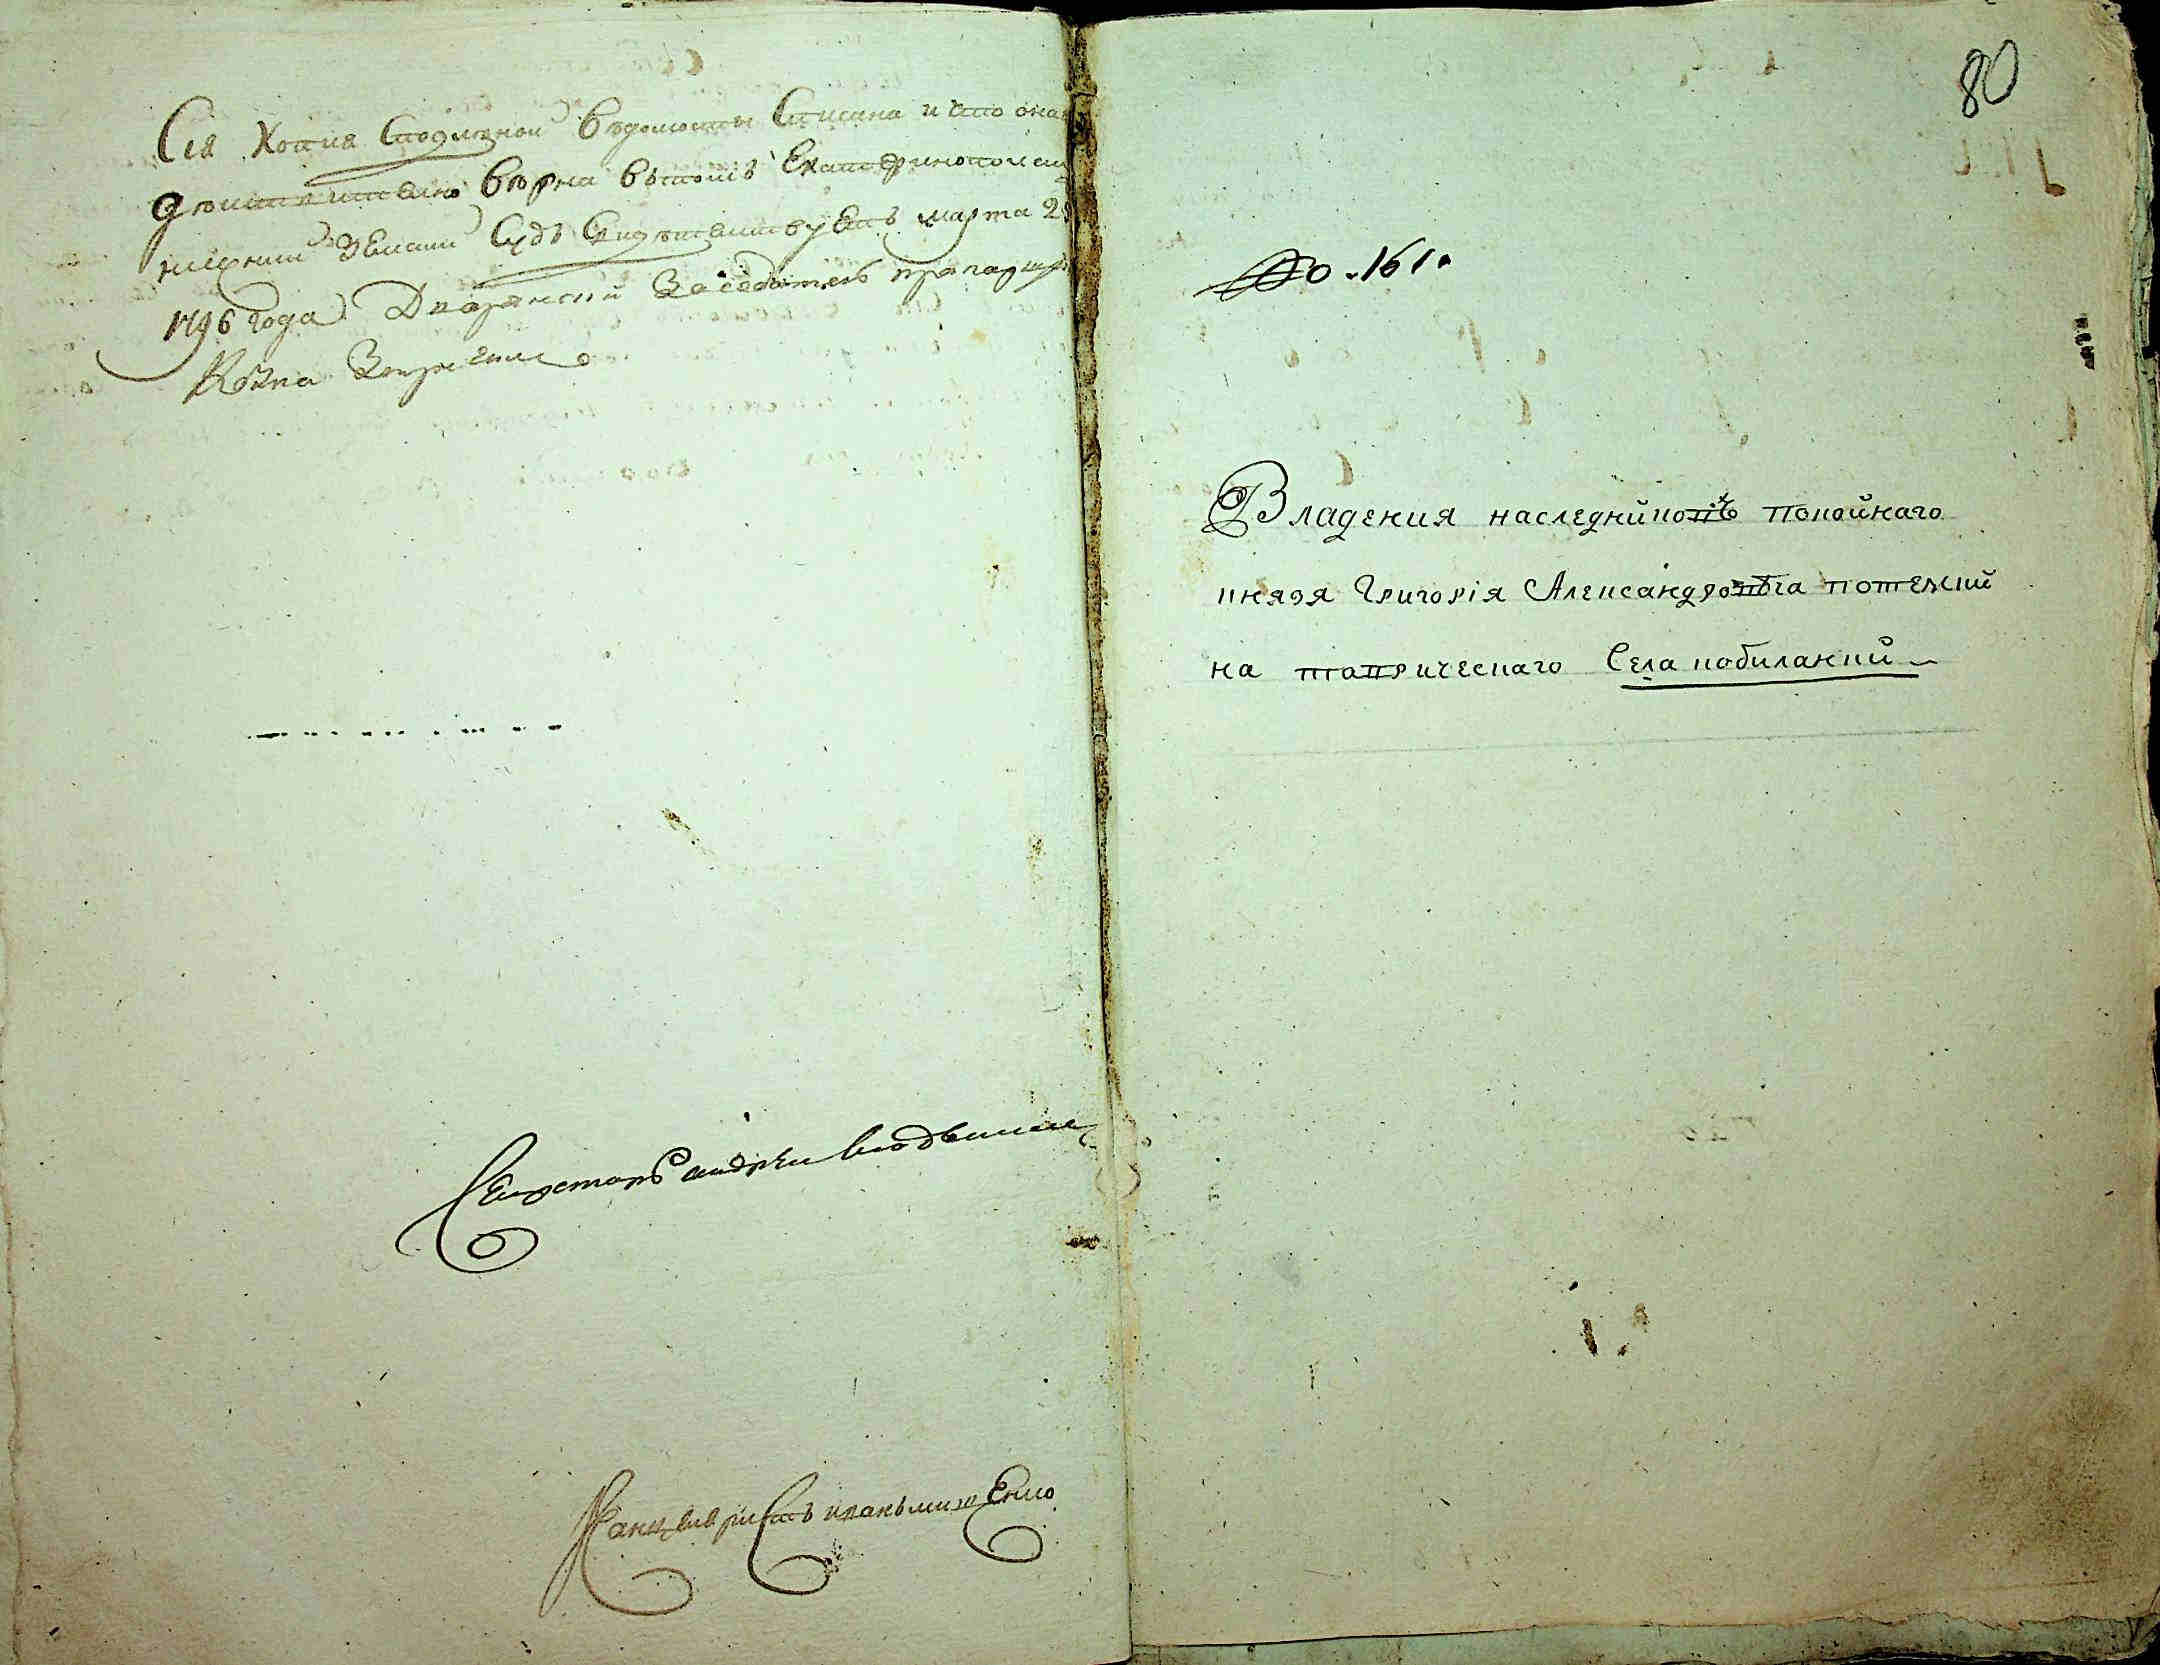 Сия Копия Споdлинои Ведомости Списана и что она
действително верна втомъ Екатеринополски
нижнии Земски Судъ Свидетелствуетъ марта 2
1796 года Дворянский Заседатель прапорщик
Козма
Секретарь андреи
Канцеляристъ иванъ
80
№ 161.
Владения наследниковъ покойнаго
князя Григорія Александровича потемкин
на таврическаго Села кобиланки